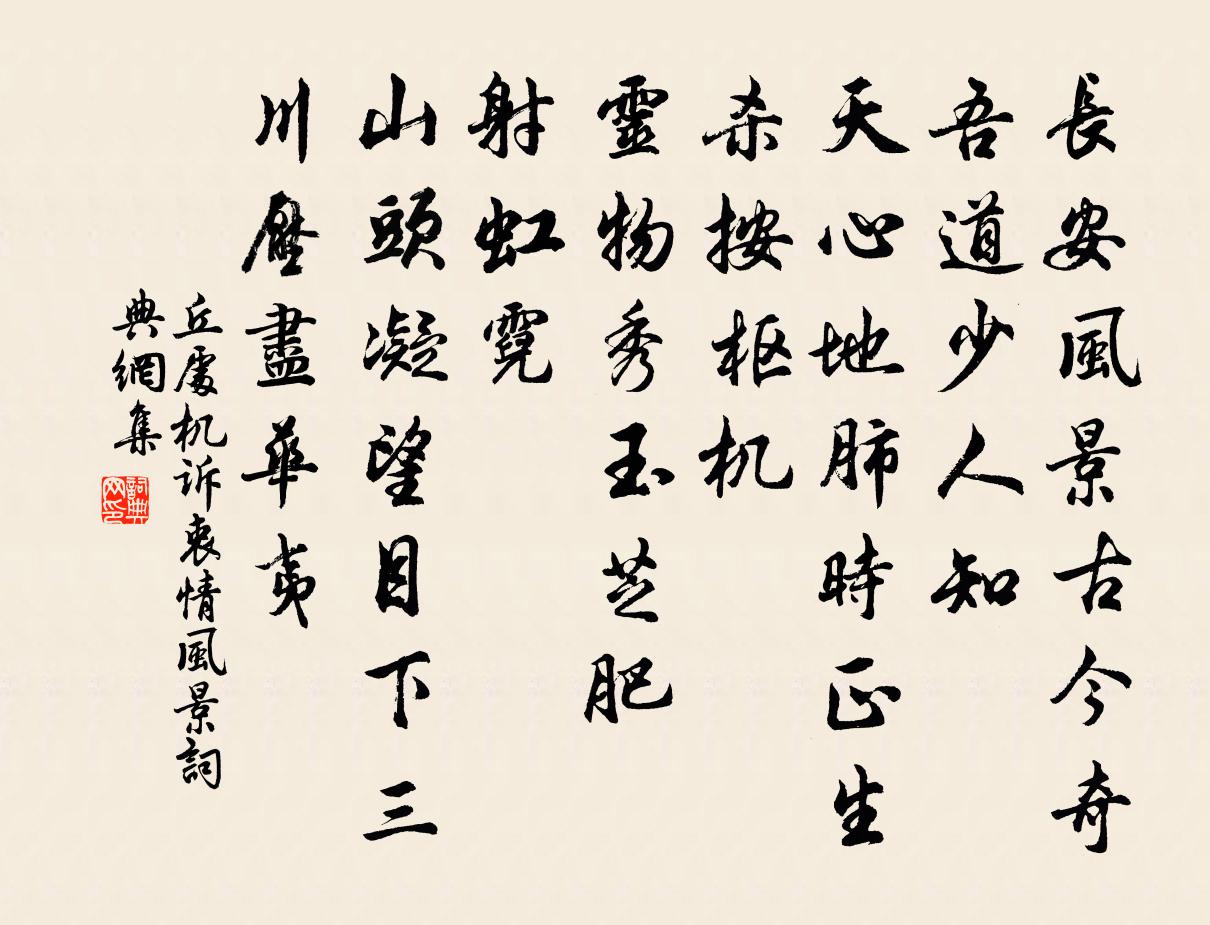 長安風景古今奇
吾道少人知
天心地肺時正生
杀按枢机
靈物秀玉芝肥
射虹霓
山頭凝望目下三
川壓盡華夷
丘處机诉衷情風景詞
典網集
詞典网印